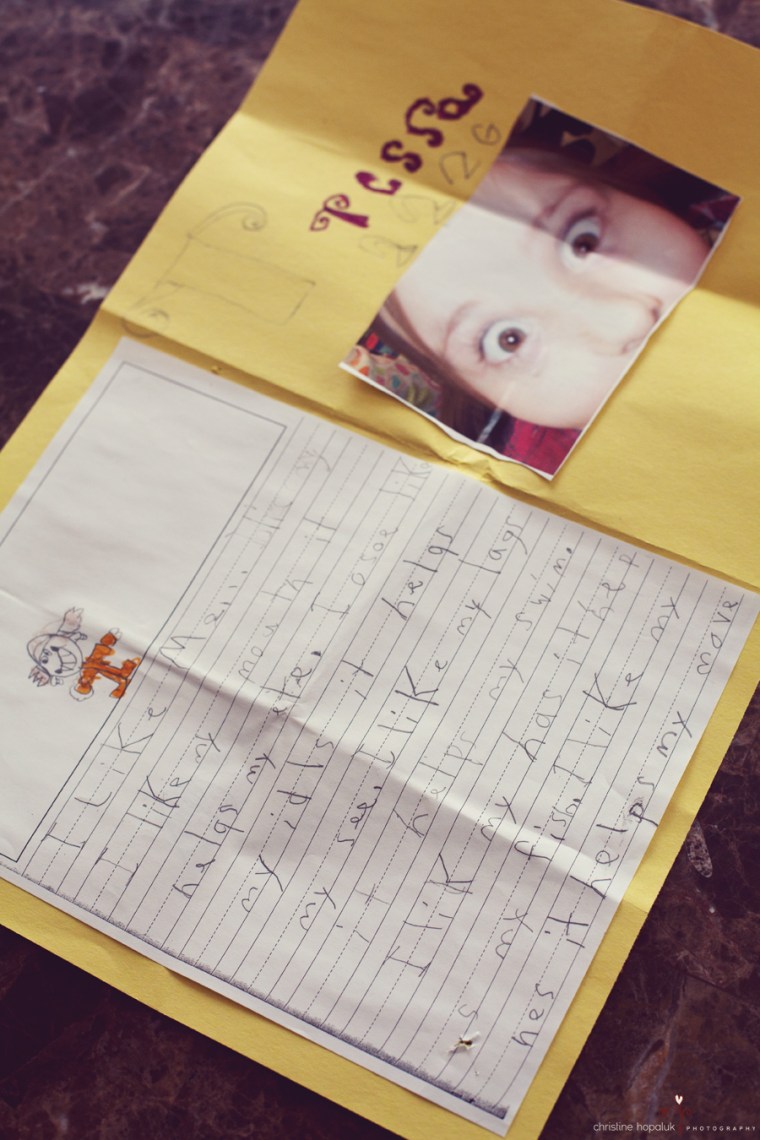 Tessa
T
I LiKe Me....
I liKe my mouth it
helps my ete. I osoe like
my idls it helps
my see. I liKe my lags
it helps my swim.
I liK my has it
s my I liKe my
hes it helps my move
christine hopaluk PHOTOGRAPHY